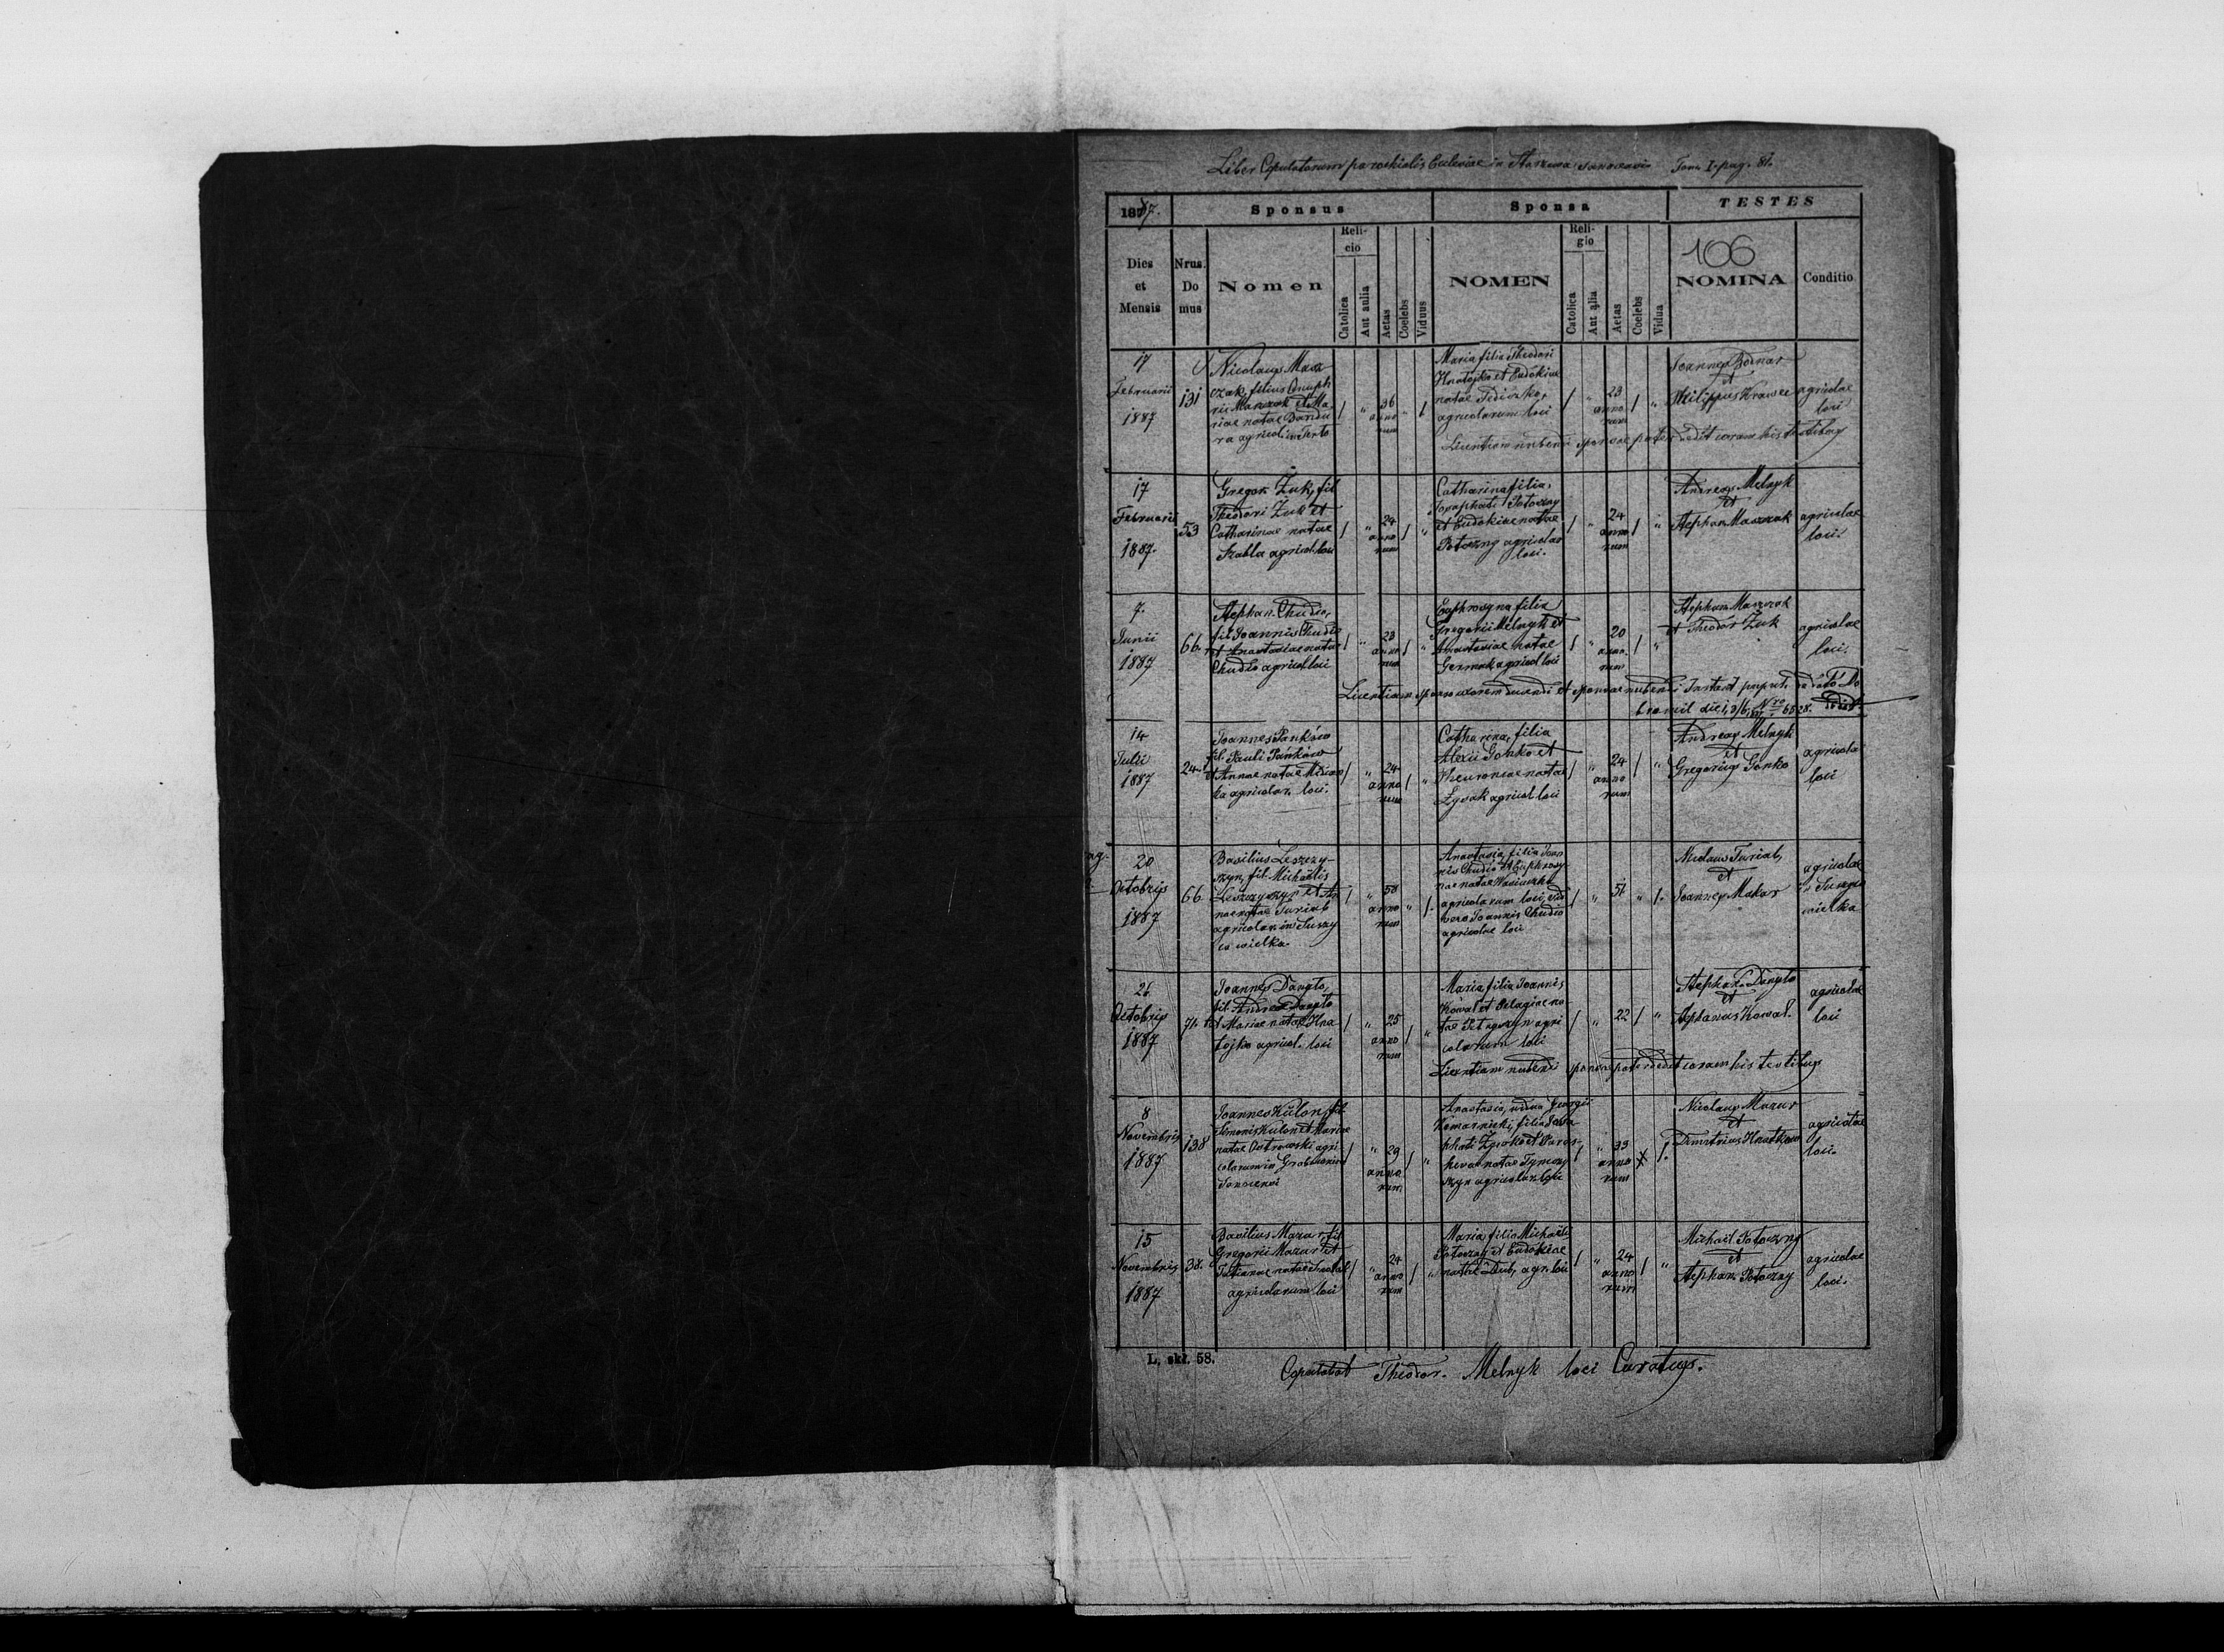 Liber Copulatorum parochialis Ecclesiae in Starzawa sanocensis Tom I. pag. 81.
1887. Sponsus Sponsa TESTES
Dies et Mensis
Nrus Domus
Nomen
Reli-
cio
Catolica
Aut aulia
Aetas
Coelebs
Viduus
NOMEN
Reli-
gio
Catolica
Aut alia
Aetas
Coelebs
Vidua
106
NOMINA
Conditio
17
Februarii
1887
131
Nicolaus Masz
czak, filius Onuph
rii Maszczak et Ma
riae natae Bandu
ra agricol in Terlo
/ " 36 annorum " /
Maria filia Theodori
Hnatejko et Eudokiae
natae Fediczko,
agricolarum loci
/ " 23 annorum / "
Joannes Bodnar
et
Philippus Krawec
agricolae
loci
Licentiam nubendi sponsae pater dedit coram his testibus
17
Februarii
1887.
53
Gregor Żuk, fil
Theodori Żuk et
Catharinae natae
Szabla agricol. loci
/ " 24 annorum / "
Catharina filia
Josaphati Potoczny
et Eudokiae natae
Potoczny agricolar
loci.
/ " 24 annorum / "
Andreas Melnyk
et
Stephan Maszczak
agricolae
loci.
7.
Junii
1887
66.
Stephan Chudio,
fil. Joannis Chudio
et Anastasiae natae
Chudio agricol loci
/ " 23 annorum / "
Euphrosyna filia
Gregorii Melnyk et
Anastasiae natae
Germak agricol loci
/ " 20 annorum / "
Stephan Maszczak
et Theodor Żuk
agricolae
loci.
Licentiam sponso uxorem ducendi et sponsae nubendi
14
Julii
1887
24
Joannes Pańków
fil. Pauli Pańków
et Annae natae
agricolar. loci.
/ " 24 annorum / "
Catharina, filia
Alexii Gonko et
natae
Łysak agricol loci
/ " 24 annorum / "
Andreas Melnyk
et
Gregorius Gonko
agricolae
loci
20
Octobris
1887
66
Basilius Leszczy-
szyn, fil. Michaelis
Leszczyszyn et An
nae natae Turiab
agricolar. in Suszy
ca wielka.
/ " 58 annorum " /.
Anastasia, filia Joan
nis Chudio et Euphrosy
nae natae
agricolarum loci,
vero Joannis Chudio
agricolae loci
/ " 51 " /.
Nicolaus Turiab,
et
Joannes Makar
agricolae
in Suszyca
wielka
26
Octobris
1887
71.
Joannes Danyło,
fil. Andreae Danyło
et Mariae natae Hna
tejko agricol. loci
/ " 25 annorum / "
Maria filia Joannis
Kowal et Pelagiae na
tae agri
colarum loci
/ " 22 / "
Stephan Danyło
et
Stephanus Kowal.
agricolae
loci
Licentiam nubendi sponsae pater dedit coram his testibus
8
Novembris
1887
138
Joannes Kulon, fil
Simonis Kulon et Mariae
natae Ostrowski agri
colarum in
Sanocensi
/ " 29 annorum / "
Anastasia, vidua Georgii
Komarnicki, filia Josa
phati et Paras-
kevae natae Tymczy
szyn agricolar. loci
/ " 39 annorum /.
Nicolaus Mazur
et
Dimitrius Hnatkow
agricolae
loci.
15
Novembris
1887
38.
Basilius Mazur, fil
Gregorii Mazur et
Tatianae natae
agricolarum loci
/ " 24 annorum / "
Maria, filia Michaelis
Potoczny et Eudokiae
natae Dub, agr. loci
/ " 24 annorum / "
Michael Potoczny
et
Stephan Potoczny
agricolae
loci.
L. skł. 58.
Copulabat Theodor. Melnyk loci Curatus.